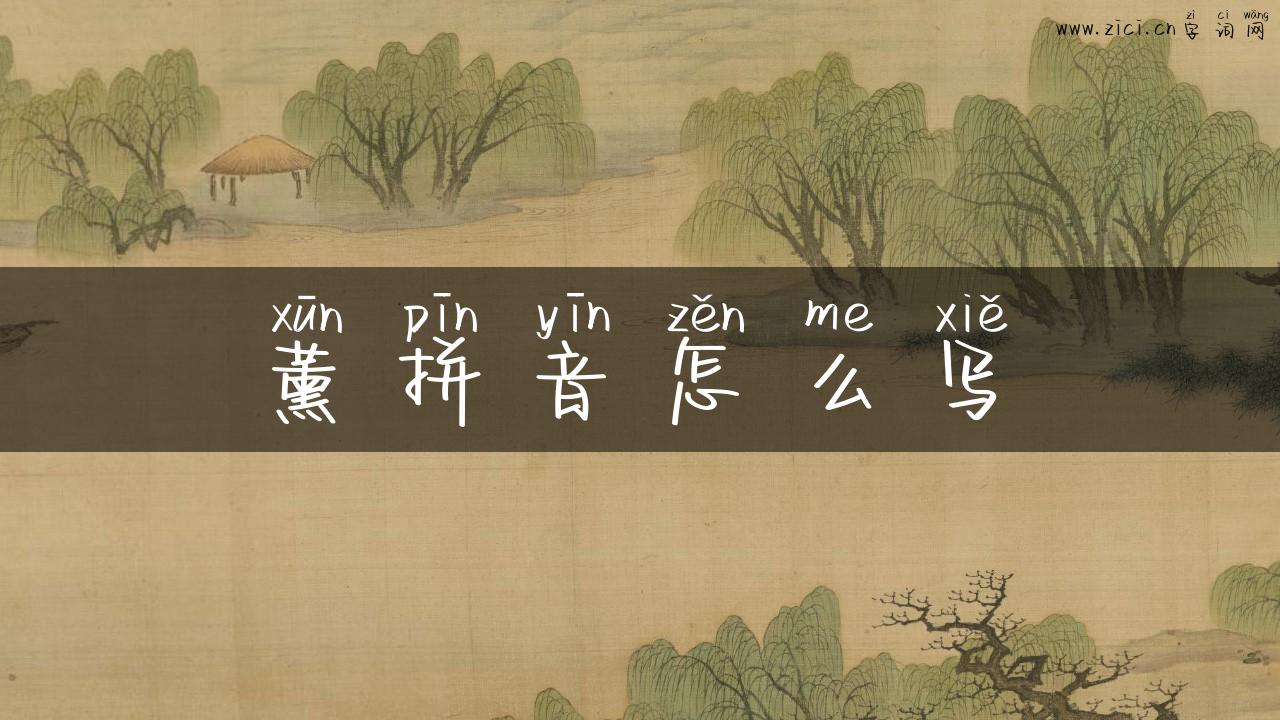 zì cí wǎng
www.zici.cn 字词网
xūn pīn yīn zěn me xiě
薰拼音怎么写